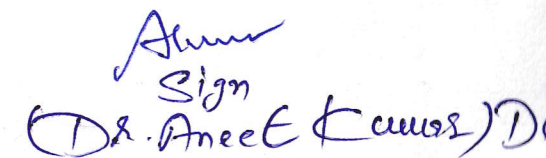 Sign
(Dr. Aneet Kumar) D